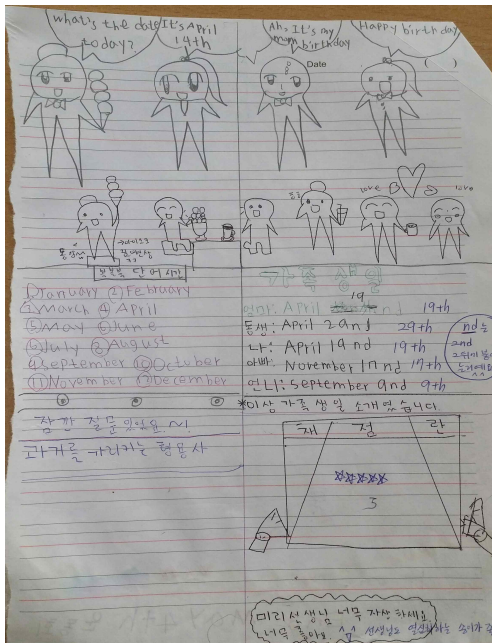 what's the date today?
It's April 14th
Ah, It's my mom birthday
Happy birthday
Date ( )
love
love
단어 시간
①January ②February
③March ④April
⑤May ⑥June
⑥July ⑧August
⑨September ⑩October
⑪November ⑫December
잠깐 질문있어요~!
과거를 가리키는 형용사
가족 생일
엄마: April 19th
동생: April 29nd 29th
나: April 19nd 19th
아빠: November 17nd 17th
언니: September 9nd 9th
nd는
2nd
*이상 가족 생일 소개였습니다.
채 점 란
☆☆☆☆☆
3
미리선생님 너무 자상하세요
너무 좋아요. ^^